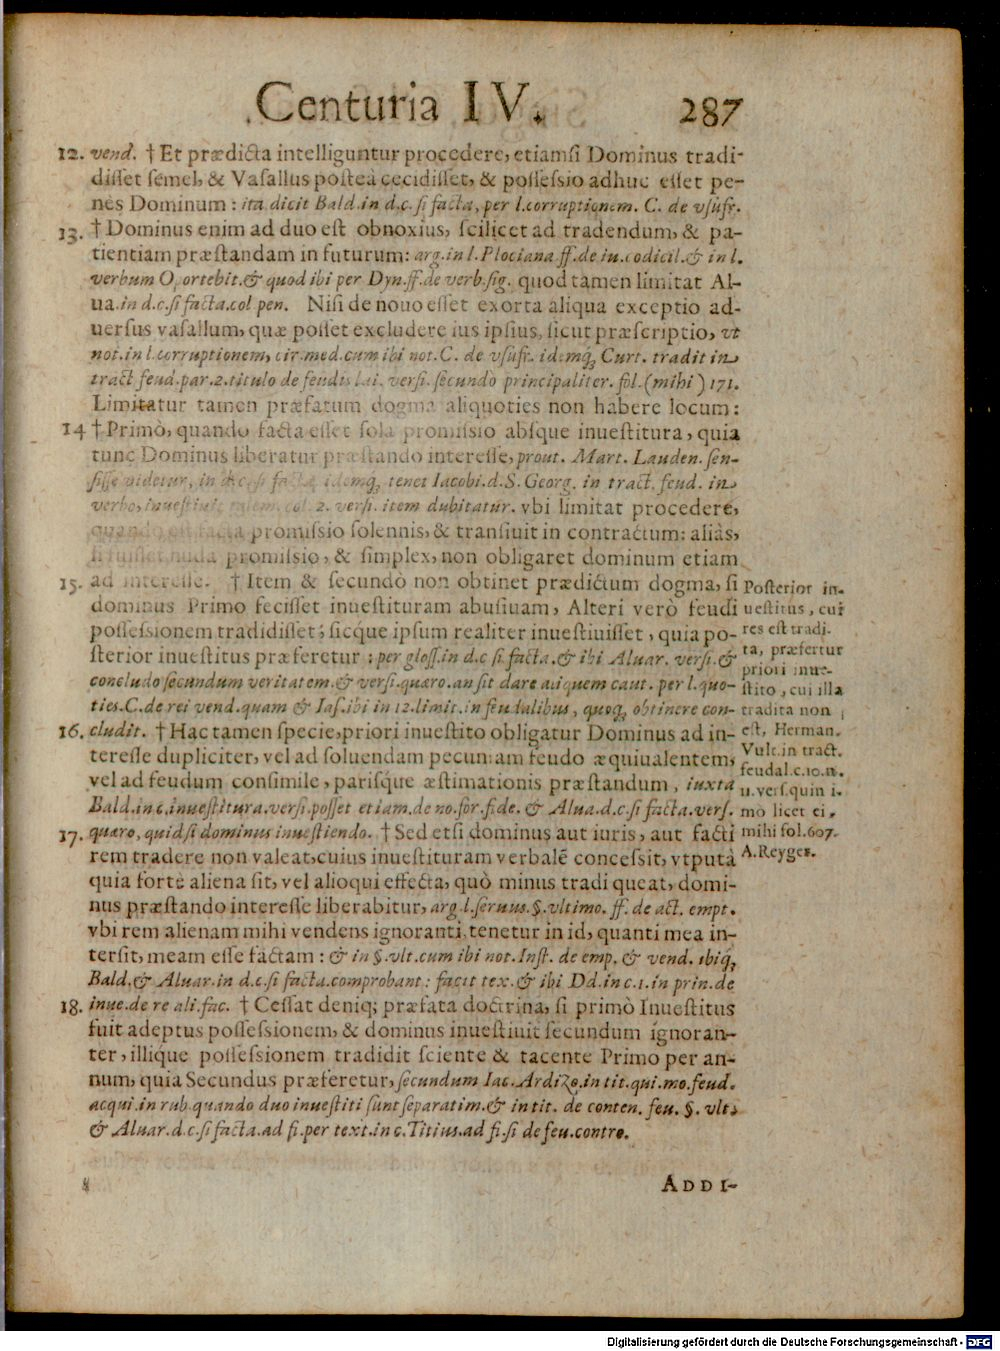 Centuria IV. 287
12. vend. † Et prædicta intelliguntur procedere, etiamsi Dominus tradi-
disset semel, & Vasallus posteà cecidisset, & possessio adhuc esset pe-
nes Dominum: ita dicit Bald. in d.c. si facta, per l. corruptionem. C. de vsufr.
13. † Dominus enim ad duo est obnoxius, scilicet ad tradendum, & pa-
tientiam præstandam in futurum: arg. in l. Plociana ff. de iu. codicil. & in l.
verbum Oportebit. & quod ibi per Dyn. ff. de verb. sig. quod tamen limitat Al-
ua. in d.c. si facta. col pen. Nisi de nouo esset exorta aliqua exceptio ad-
uersus vasallum, quæ posset excludere ius ipsius, sicut præscriptio, vt
not. in l. corruptionem, cir. med. cum ibi not. C. de vsufr. idemq; Curt. tradit in
tract feud. par. 2. titulo de feudis lai. versi. secundò principaliter. fol. (mihi) 171.
Limitatur tamen præfatum dogma aliquoties non habere locum:
14 † Primò, quando facta esset sola promissio absque inuestitura, quia
tunc Dominus liberatur præstando interesse, prout. Mart. Lauden. sen-
sisse videtur, in d.c. si facta, idemq; tenet Iacobi. d. S. Georg. in tract. feud. in
verbo, inuestiuit col. 2. versi. item dubitatur. vbi limitat procedere,
quando est facta promissio solennis, & transiuit in contractum: aliàs,
si fuisset nuda promissio, & simplex, non obligaret dominum etiam
15. ad interesse. † Item & secundò non obtinet prædictum dogma, si
dominus Primo fecisset inuestituram abusiuam, Alteri verò feudi
possessionem tradidisset; sicque ipsum realiter inuestiuisset, quia po-
sterior inuestitus præferetur: per gloss. in d.c si facta. & ibi Aluar. versi. &
concludo secundum veritatem. & versi. quæro. an sit dare aliquem caut. per l. quo-
ties. C. de rei vend. quam & Ias. ibi in 12. limit. in feudalibus, quoq; obtinere con-
16. cludit. † Hac tamen specie, priori inuestito obligatur Dominus ad in-
teresse dupliciter, vel ad soluendam pecuniam feudo æquiualentem,
vel ad feudum consimile, parisque æstimationis præstandum, iuxta
Bald. in c. inuestitura. versi. posset etiam. de no. for. fide. & Alua. d.c. si facta. vers.
17. quæro, quid si dominus inuestiendo. † Sed etsi dominus aut iuris, aut facti
rem tradere non valeat, cuius inuestituram verbalē concessit, vtputà
quia fortè aliena sit, vel alioqui effecta, quò minus tradi queat, domi-
nus præstando interesse liberabitur, arg. l. seruus. §. vltimo. ff. de act. empt.
vbi rem alienam mihi vendens ignoranti, tenetur in id, quanti mea in-
tersit, meam esse factam: & in §. vlt. cum ibi not. Inst. de emp. & vend. ibiq;
Bald. & Aluar. in d.c. si facta. comprobant: facit tex. & ibi Dd. in c. 1. in prin. de
18. inue. de re ali. fac. † Cessat deniq; præfata doctrina, si primò Inuestitus
fuit adeptus possessionem, & dominus inuestiuit secundum ignoran-
ter, illique possessionem tradidit sciente & tacente Primo per an-
num, quia Secundus præferetur, secundum Iac. Ardizo. in tit. qui. mo. feud.
acqui. in rub. quando duo inuestiti sunt separatim. & in tit. de conten. feu. §. vlt.
& Aluar. d.c. si facta. ad fi. per text. in c. Titius. ad fi. si de feu. contro.
Posterior in-
uestitus, cui
res est tradi-
ta, præfertur
priori inue-
stito, cui illa
tradita non
est, Herman.
Vult. in tract.
feudal. c. 10. n.
11. vers. quin i-
mò licet ei.
mihi fol. 607.
A. Reyger.
ADDI-
Digitalisierung gefördert durch die Deutsche Forschungsgemeinschaft - DFG